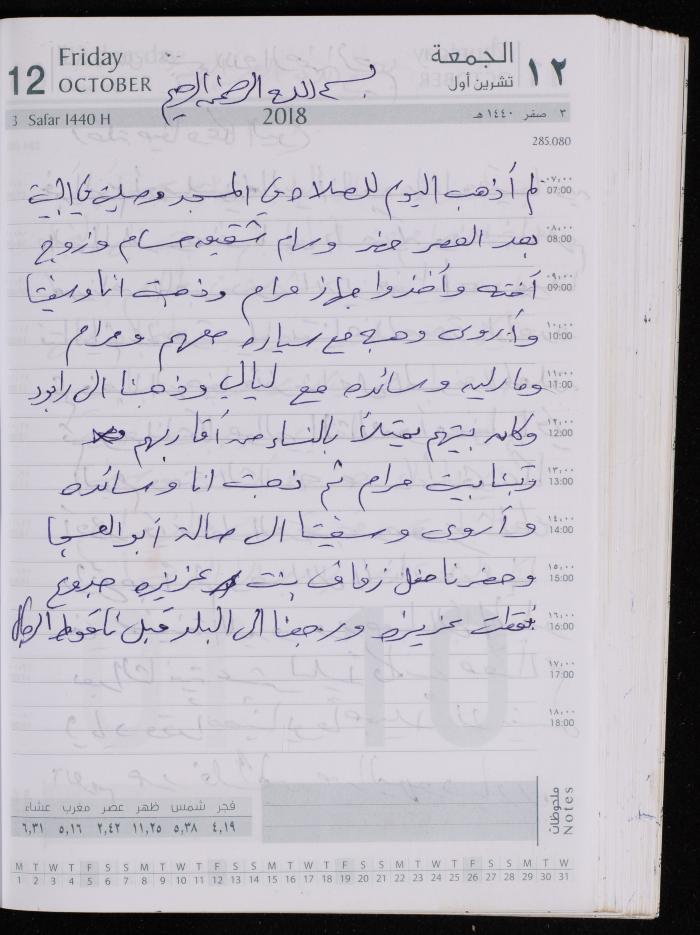 12
Friday
OCTOBER
الجمعة
تشرين أول
١٢
بسم الله الرحمن الرحيم
3 Safar 1440 H
2018
٣ صفر ١٤٤٠ هـ
285.080
لم أذهب اليوم للصلاة في المسجد وصليت في البيت
٠٧,٠٠
07:00
بعد العصر حضر وسام شقيقه حسام وزوج
٠٨,٠٠
08:00
أخته وأخذوا جهاز مرام وذهبت انا وسفيتا
٠٩,٠٠
09:00
وأروى وهبه مع سياره معهم ومرام
١٠,٠٠
10:00
وماريه وسائده مع ليالي وذهبنا الى رابود
١١,٠٠
11:00
وكان بيتهم يمتلأ بالنساء من أقاربهم
١٢,٠٠
12:00
بيت مرام ثم ذهبت انا وسائده
١٣,٠٠
13:00
وأروى وسفيتا الى صالة أبو العسجا
١٤,٠٠
14:00
وحضرنا حفل زفاف بنت عزيزه جدوع
١٥,٠٠
15:00
نقطت عزيزه ورجعنا الى البلد قبل
١٦,٠٠
16:00
١٧,٠٠
17:00
١٨,٠٠
18:00
ملحوظات
Notes
فجر شمس ظهر عصر مغرب عشاء
٤,١٩ ٥,٣٨ ١١,٢٥ ٢,٤٢ ٥,١٦ ٦,٣١
M T W T F S S M T W T F S S M T W T F S S M T W T F S S M T W
1 2 3 4 5 6 7 8 9 10 11 12 13 14 15 16 17 18 19 20 21 22 23 24 25 26 27 28 29 30 31